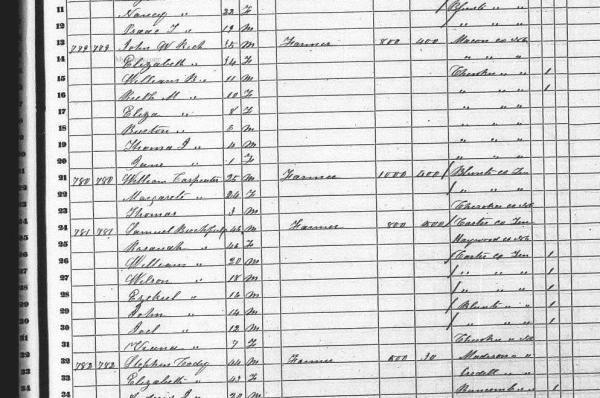 11 Nancy " 22 F Blunt " "
12 Isaac L " 19 M " " "
13 789 789 John W Rich 35 M Farmer 800 400 Macon co NC
14 Elizabeth " 34 F " " "
15 William R " 11 M Cherokee " " 1
16 Ruth M " 10 F " " " 1
17 Eliza " 8 F " " "
18 " 5 M " " "
19 Thomas J " 4 M " " "
20 Jane " 1 F " " "
21 780 780 William Carpenter 25 M Farmer 1000 400 Blunt co Ten
22 Margarete " 24 F " " "
23 Thomas " 3 M Cherokee co NC
24 781 781 Samuel 45 M Farmer 800 Carter co Ten
25 " 46 F Haywood co NC
26 William " 20 M Carter co Ten 1
27 Wilson " 18 M " " " 1
28 Ezekiel " 16 M " " " 1
29 John " 14 M Blunt " " 1
30 Joel " 12 M " " " 1
31 " 7 F Cherokee " NC
32 782 782 Stephen 44 M Farmer 30 Madison " "
33 Elizabeth " 43 F " "
34 20 M Buncomb " " 1